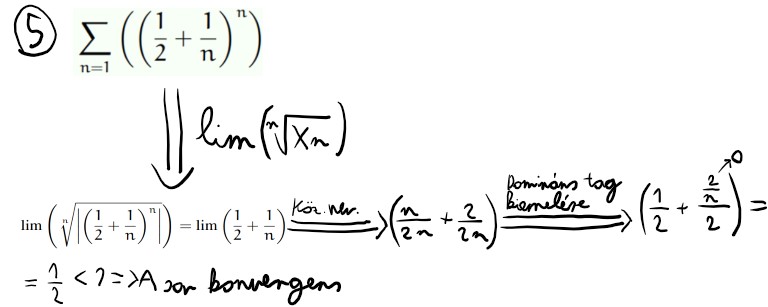 ⑤ \sum_{n=1} \left(\left(\frac{1}{2} + \frac{1}{n}\right)^n\right)
⇓ lim(\sqrt[n]{X_n})
\lim\left(\sqrt[n]{\left|\left(\frac{1}{2} + \frac{1}{n}\right)^n\right|}\right) = \lim\left(\frac{1}{2} + \frac{1}{n}\right) \xRightarrow{Köz. nev.} \left(\frac{n}{2n} + \frac{2}{2n}\right) \xRightarrow{Domináns tag kiemelése} \left(\frac{1}{2} + \frac{\frac{2}{n} → 0}{2}\right) =
= \frac{1}{2} < 1 => A sor konvergens